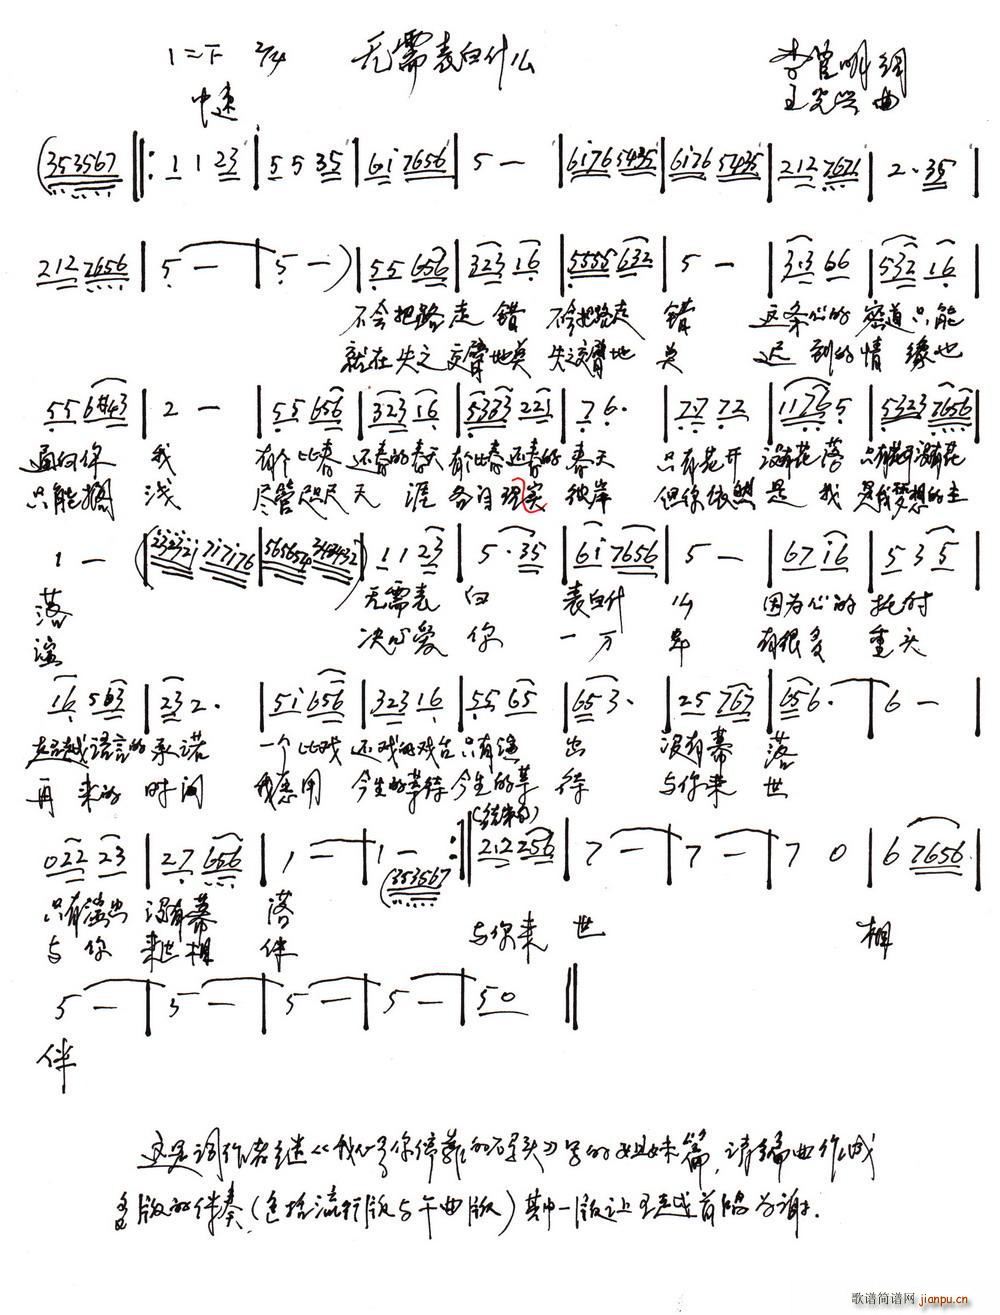 1=F 2/4 无需表白什么 李 明词
中速 王 曲
(353567 ‖: 1 1 23 | 5 5 35 | 6i 7656 | 5 — | 6i76 5435 | 6i76 5435 | 212 7671 | 2· 35 |
212 7656 | 5 — | 5 — ) | 55 656 | 323 16 | 5555 632 | 5 — | 3·3 66 | 532 16 |
不会把路走错 不会把路走 错 这条心的 密道只能
就在失之交臂地 失之交臂地 迟到的情缘也
556#43 | 2 — | 55 656 | 323 16 | 5333 221 | 76· | 77 72 | 1176 5 | 5323 7656 |
通向你 我 有个比春 还春的春天 有个比春还春的 春天 只有花开 没有花落 只有花开没有花
只能搁 浅 尽管咫尺 天 涯 各自现实 彼岸 但你依然 是 我 是我梦想的主
1 — | (23232i 7i7i76 | 565654 343432) | 11 23 | 5·35 | 6i 7656 | 5 — | 67 i6 | 5 3 5 |
落 无需表 白 表白什 么 因为心的 托付
演 决心爱 你 一 万 年 有很多 重头
16 563 | 23 2· | 5i 656 | 323 16 | 55 65 | 65 3· | 25 767 | 656· | 6 — |
超越语言的 承诺 一个比戏 还戏的戏台 只有演 出 没有幕 落
再 来的 时间 我愿用 今生的等待 今生的等 待 与你来 世
(结束句)
022 23 | 27 656 | 1 — | 1 — (353567 :‖ 212 256 | 7 — | 7 — | 7 0 | 6 7656 |
只有演出 没有幕 落 与你来 世 相
与 你 来世相 伴
5 — | 5 — | 5 — | 5 — | 50 ‖
伴
这是词作者继《我心为你停靠的码头》写的姐妹篇,请编曲作成
多版的伴奏,(包括流行版与 曲版)其中一版让王 首唱为谢.
歌谱简谱网
jianpu.cn